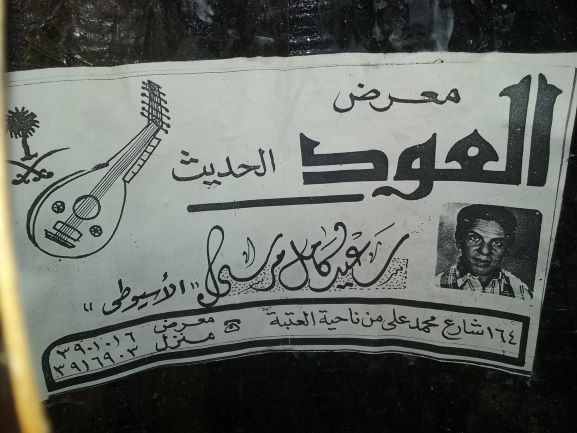 معرض
العود الحديث
سعيد كامل مرسى "الأسيوطى"
١٦٤ شارع محمد على من ناحية العتبة
معرض ٣٩٠١٠١٦
منزل ٣٩١٦٩٠٣